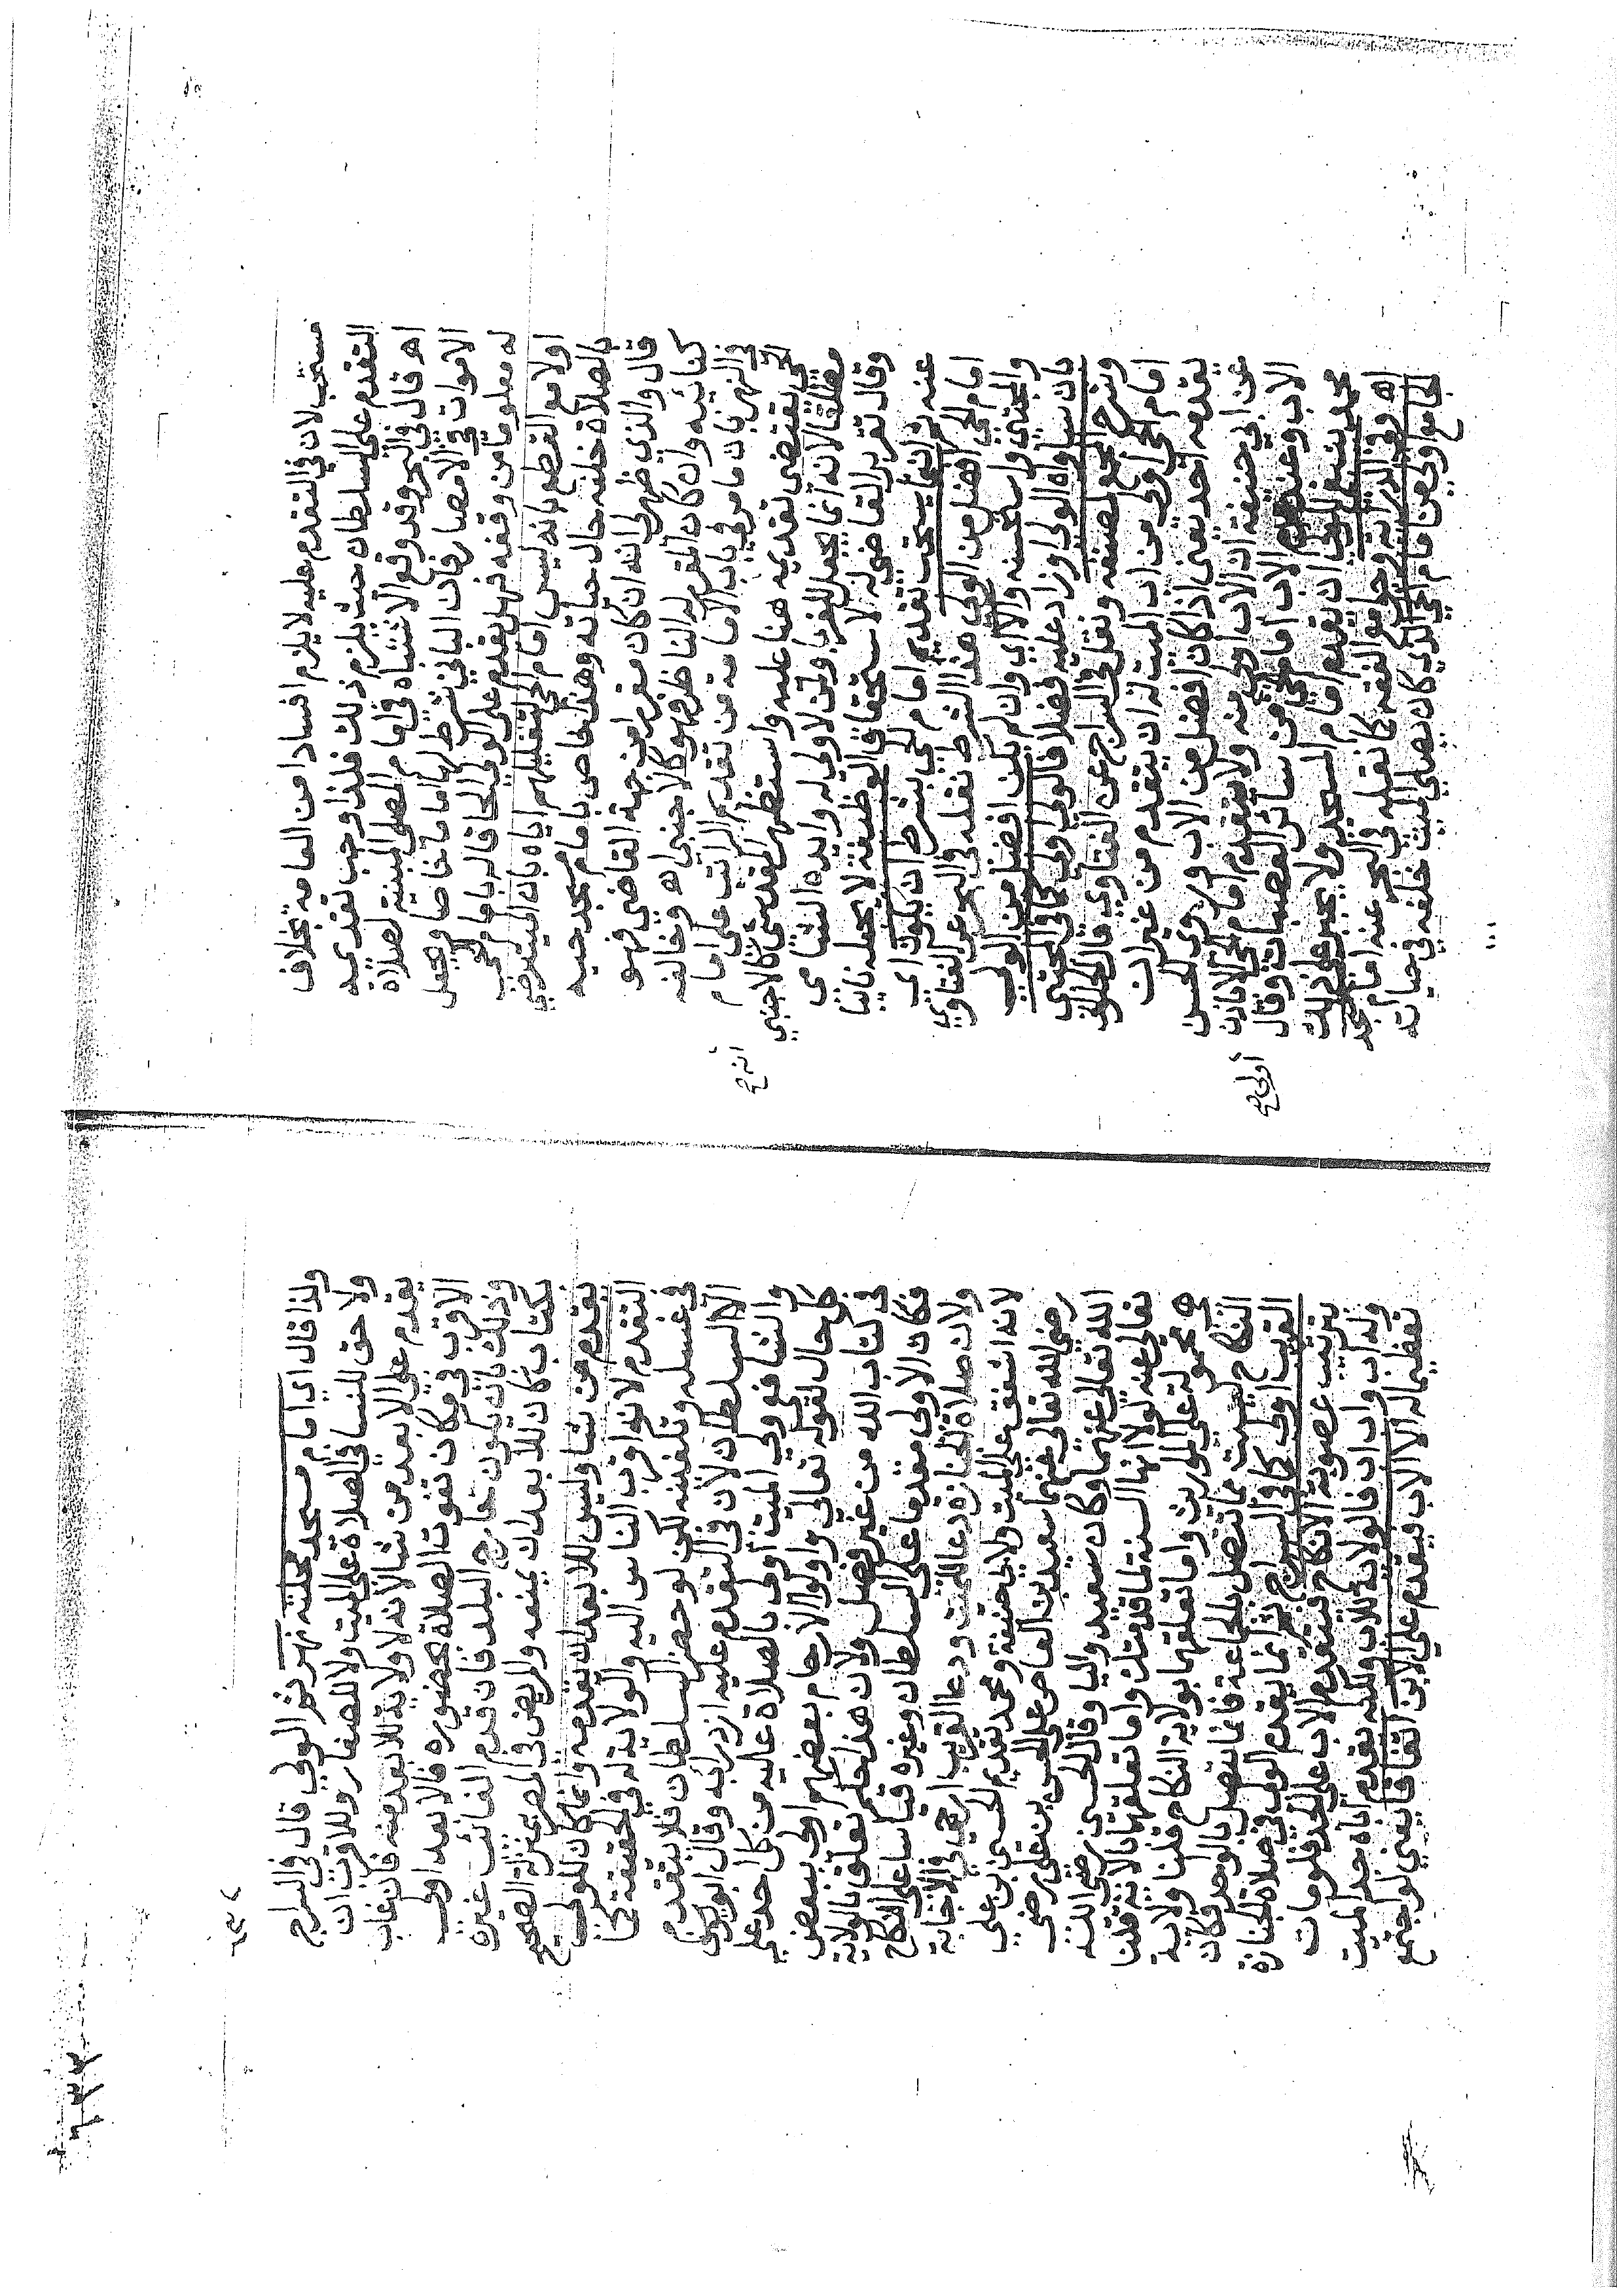 مستحب لان في التقدم عليه لا يلزم افسادا من العامة بخلاف
التقدم على السلطان حيث يلزم ذلك فلذا وجب تقديمه
اه قال في البحر وقد وقع الاشتباه في امام المصلى المبنية لصلاة
الاموات في الامصار فان الباني يشرط لها اماما خاصا ويجعل
له معلوما من وقفه فهل يقدم على الولي الحاقا له بامام الحي
اولا مع القطع بانه ليس امام الحي لتعليلهم اياه بان الميت رضي
بالصلاة خلفه حال حياته وهذا خاص بامام مسجد حيه
قال والذي ظهر لي انه ان كان مقررا من جهة القاضي فهو
كنائبه وان كان المقرر له الناظر فهو كالاجنبي اه وخالفه
في النهر بان ما مر في باب الامامة من تقديم الراتب على امام
الحي يقتضي تقديمه هنا عليه واستظهر المقدسي كالاجنبي
انه صح
مطلقا لانه انما يجعل للغربا ومن لا ولي له وايده الشامي
وقال تقرير القاضي له لاستحقاق الوظيفة لا لجعله نائبا
عنه ثم انما يستحب تقديم امام الحي بشرط ان يكون اي
امام الحي افضل من الولي هذا الشرط نقله في البحر عن الفتاوي
والمجتبى واستحسنه والا اي وان لم يكن افضل من الولي
بان ساواه الولي او زاد عليه فضلا فالولي اولى كما في المجتبى
وشرح المجمع لمصنفه ونقل في السراج عن الفتاوي قال الحلواني
امام الحي اولى من اب الميت له ان يتقدم من غير ان
يقدمه احد يعني اذا كان افضل من الاب وروي الحسن
عن ابي حنيفة ان الاب اولى منه ولا يتقدم امام الحي الا باذن
الاب وعندهم الاب امام الحي من سائر العصبات وقال
اولى صح
محمد ينبغي للولي ان يقدم امام المسجد ولا يجبر على ذلك
اه وفي الدراية وجامع الفقه كما نقله في البحر عنه امام المسجد
الجامع اولى من امام الحي الذي كان يصلي الميت خلفه في حياته
ولذا قال اي امام مسجد محلته نهر ثم الولي قال في السراج
ولا حق للنسا في الصلاة على الميت ولا للصغار وللاقرب ان
يقدم على الابعد من شا لانه لا ولاية للابعد منه فان غاب
الاقرب في مكان تفوت الصلاة بحضوره فالابعد اولى
وذلك بان يكون خارج البلد فان قدم الغائب غيره
بكتاب كان للابعد ان يمنعه والمريض في المصر بمنزلة الصحيح
يقدم من شا وليس للابعد ان يقدمه وانما كان للولي
التقدم لانه اقرب الناس اليه والولاية له في الحقيقة كما
في غسله وتكفينه لكن لو حضر السلطان فلا يتقدم
الا السلطان لان في التقدم عليه ازدرا به وقال ابو يوسف
والشافعي ولي الميت اولى بالصلاة عليه من كل احد على
كل حال لقوله تعالى واولوا الارحام بعضهم اولى ببعض
في كتاب الله من غير فصل ولان هذا حكم تعلق بالولاية
فكان الاولى مقدما على السلطان وغيره قياسا على النكاح
ولان صلاة الجنازة دعا للميت ودعا القريب ارجى في الاجابة
لانه اشفق على الميت ولابي حنيفة ومحمد تقديم الحسين بن علي
رضي الله تعالى عنهما سعيد بن العاص على الحسن بن علي رضي
الله تعالى عنهما وكان سعيد واليا وقال الحسين رضي الله
تعالى عنه لولا انها السنة لما قدمتك واما تعلقها بالاية قلنا
هي محمولة على المواريث واما تعلقها بولاية النكاح قلنا ولاية
النكاح ليست مما تتصل بالجماعة فانما تتصل بالواحد فكان
القريب اولى كما في السراج ثم انما يقدم الولي في صلاة الجنازة
بترتيب عصوبة الانكاح فيتقدم الاب على الجد فلو مات
وله اب وابن ابن فالولاية للاب ولكنه يقدم اباه جد الميت
تعظيما له الا الاب فيقدم على الابن اتفاقا يعني لو اجتمع